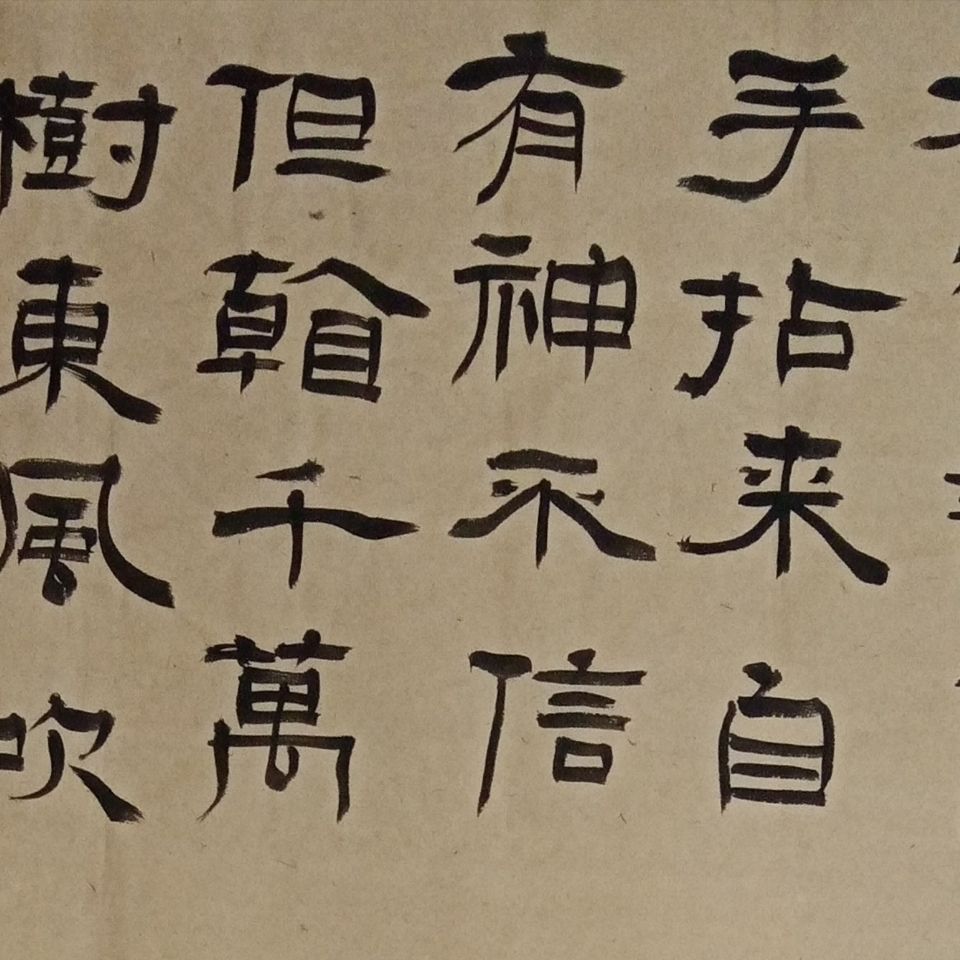 手拈来自
有神不信
但看千萬
樹東風吹